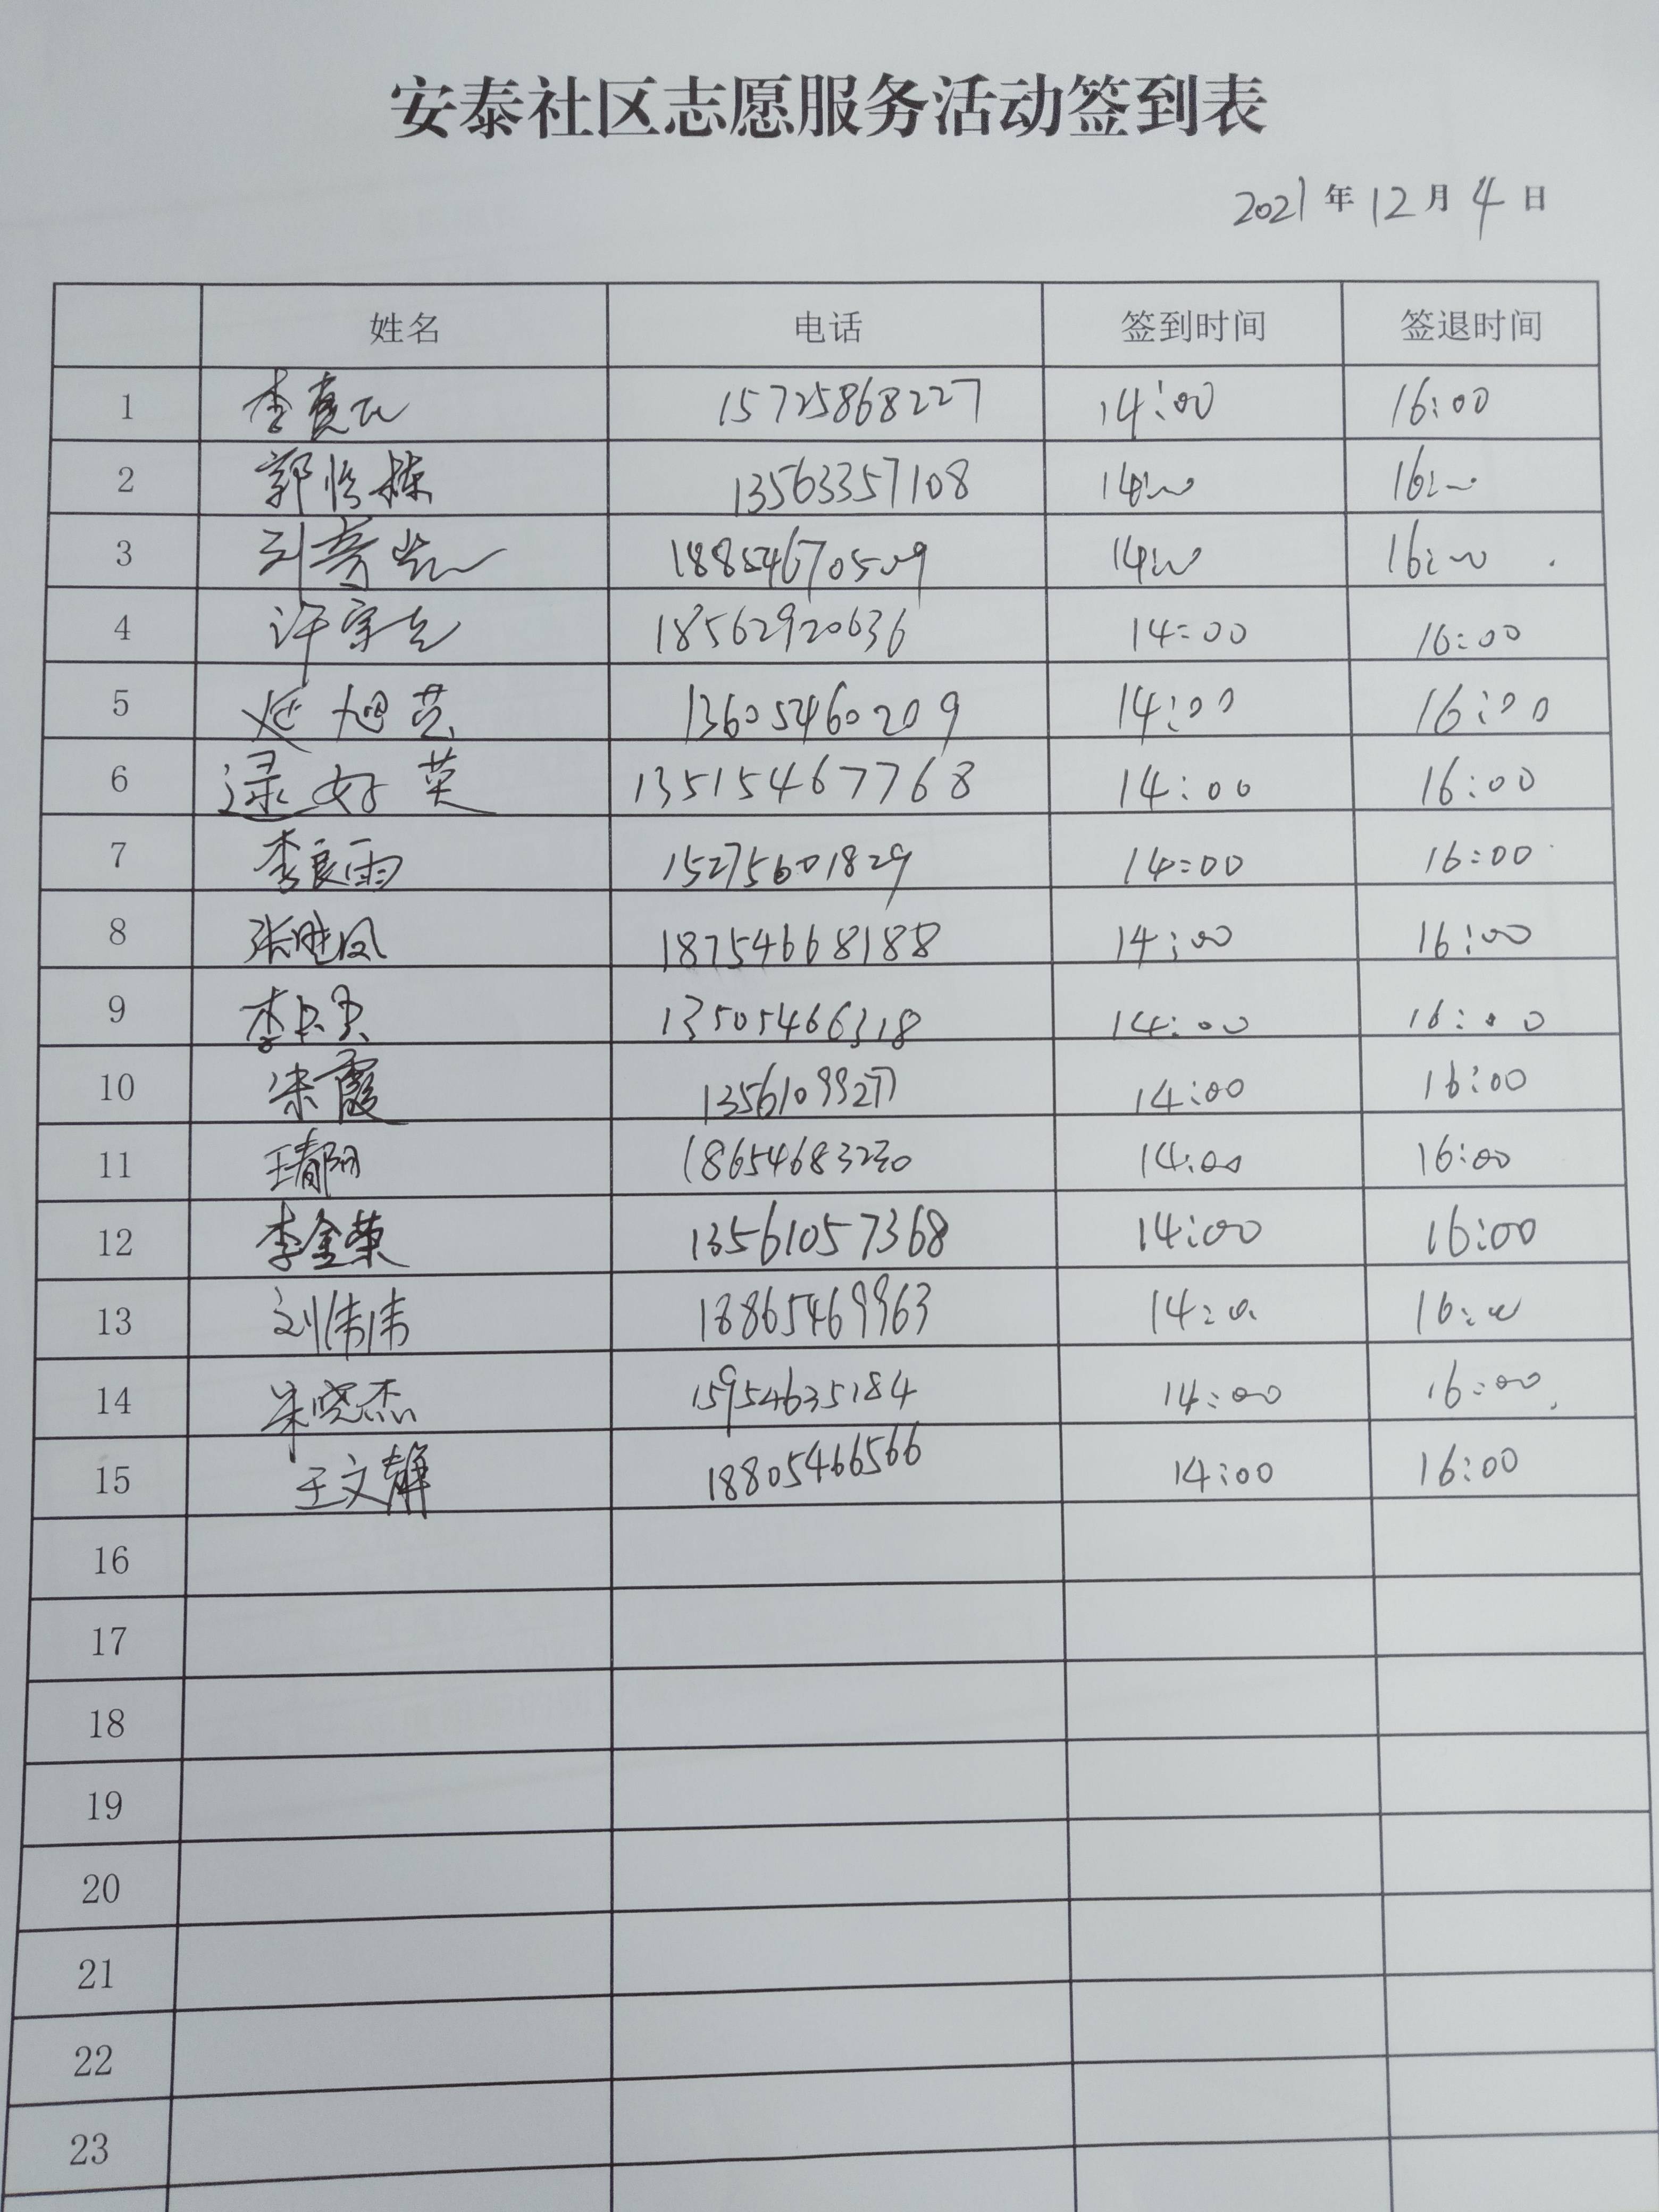 安泰社区志愿服务活动签到表
2021年12月4日
姓名 电话 签到时间 签退时间
1 李 15725868227 14:00 16:00
2 郭 栋 13563357108 14:00 16:00
3 刘 18854670509 14:00 16:00
4 许 18562920636 14:00 16:00
5 旭芸 13605460209 14:00 16:00
6 逯好英 13515467768 14:00 16:00
7 李良雨 15275601829 14:00 16:00
8 张胜凤 18754668188 14:00 16:00
9 李 13505466318 14:00 16:00
10 宋霞 13561099277 14:00 16:00
11 王 18654683230 14:00 16:00
12 李金荣 13561057368 14:00 16:00
13 刘伟伟 18865469963 14:00 16:00
14 朱晓杰 15954635184 14:00 16:00
15 王文静 18805466566 14:00 16:00
16
17
18
19
20
21
22
23